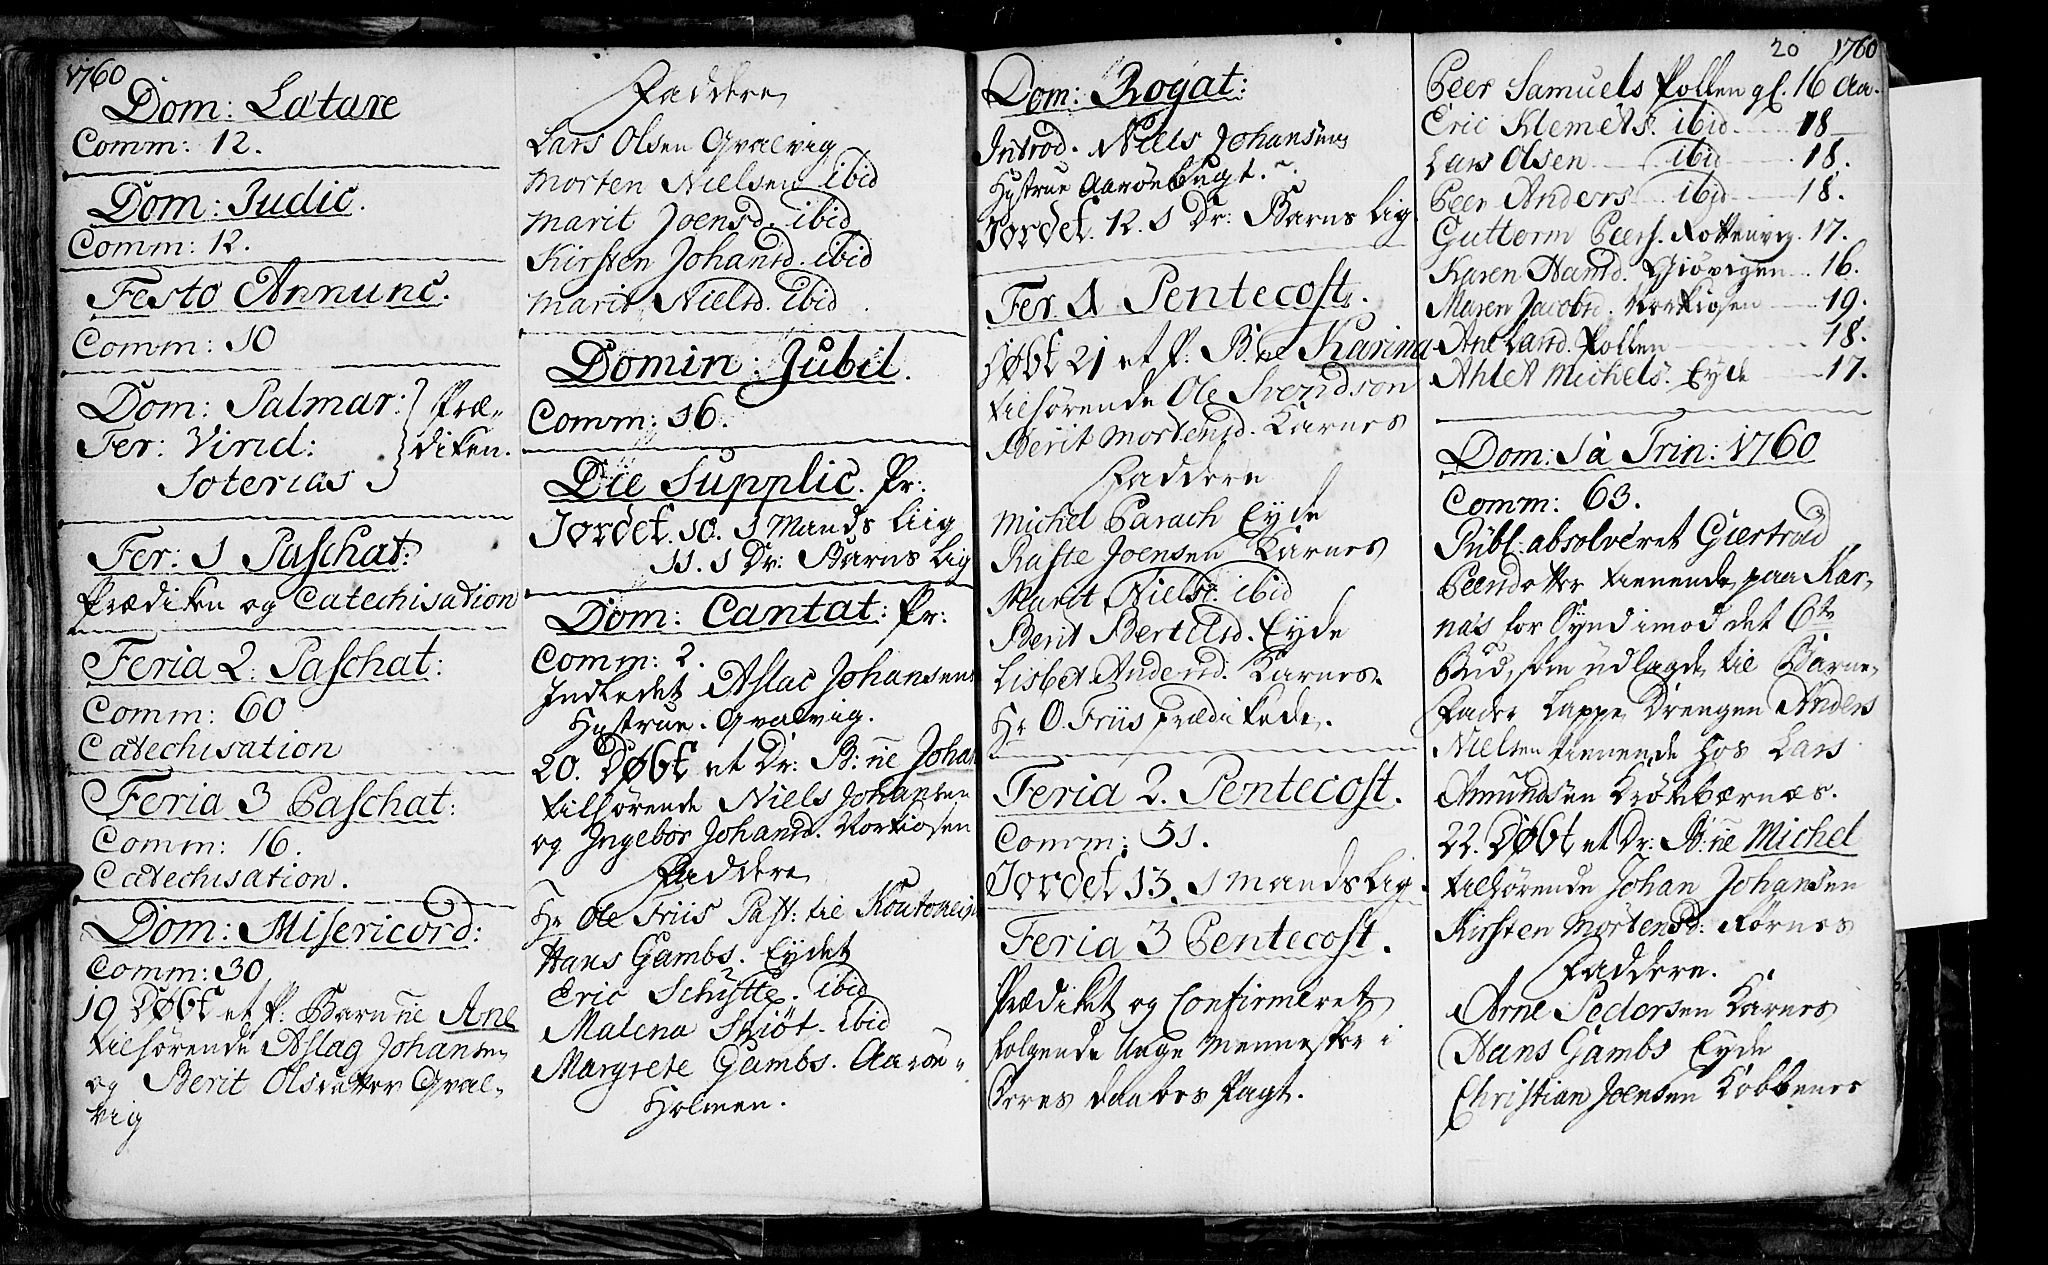 1760
Dom: Lætare
Comm: 12.
Dom: Judic.
Comm: 12.
Festo Annunc.
Comm: 10
Dom: Palmar: } Præ-
Fer: Virid: } diken.
Soterias }
Fer: 1 Paschat:
Prædiken og Catechisation
Feria 2: Paschat:
Comm: 60
Catechisation
Feria 3 Paschat:
Comm: 16.
Catechisation.
Dom: Misericord:
Comm: 30
19 Døbt et P: Barn ñe Ane
tilhørende Aslag Johansen
og Berit Olsdatter Qval-
vig
Faddere
Lars Olsen Qvalvig
Morten Nielsen ibid
Marit Joensd. ibid
Kirsten Johansd. ibid
Marit Nielsd. ibid
Domin: Jubil.
Comm: 16.
Die Supplic. Pr:
Jordet. 10. 1 Mands Liig
11. 1 Dr: Barns Lig
Dom: Cantat: Pr:
Comm: 2.
Indledet Aslac Johansens
Hystrue. Qvalvig.
20. Døbt et Dr: B: ñe Johan
tilhørende Niels Johansen
og Ingebor Johansd. Storkiosen
Faddere
Hr Ole Friis Past: til Koutokein
Hans Gambs. Eydet
Eric Schytte. ibid
Malena Skiøt. ibid
Margrete Gambs. Aarøe-
Holmen.
Dom: Rogat:
Introd. Niels Johansens
Hystrue Aarøebugt.
Jordet. 12. 1 Dr: Barns Lig
Fer. 1 Pentecost.
Døbt 21 et P: B: ñe Karina
tilhørende Ole Svendson
Berit Mortensd. Karnes
Faddere
Michel Parach Eyde
Raste Joensen Karnes
Marit Nielsd. ibid
Berit Bertelsd. Eyde
Lisbet Andersd. Karnes.
Hr O. Friis Prædikede.
Feria 2. Pentecost.
Comm: 51.
Jordet 13. 1 Mands Lig.
Feria 3 Pentecost.
Prædiket og Confirmeret
følgende Unge Mennesker i
Deres daabes Pagt.
20 1760
Peer Samuels Pollen gl. 16 Aa.
Eric Klemets. ibid 18
Lars Olsen ibid 18.
Peer Anders ibid 18.
Guttorm Peers. Rottenvig. 17.
Karen Hansd. Giøvigen 16.
Maren Jacobsd. Storkiosen 19.
Ane Larsd. Pollen 18.
Ahlet Michels. Eyde 17.
Dom: 1 à Trin: 1760
Comm: 63.
Publ. absolveret Giertrud
Peersdotter tienende paa Kar-
næs for Synd imod det 6te
Bud, som udlagde til Barne-
Fader Lappe Drengen Anders
Nielsen tienende hos Lars
Amundsen Krøkebærnæs.
22. Døbt et Dr: B: ñe Michel
tilhørende Johan Johansen
Kirsten Mortensd: Rørnes
Faddere.
Arne Pedersen Karnes
Hans Gambs Eyde
Christian Joensen Kobbenes